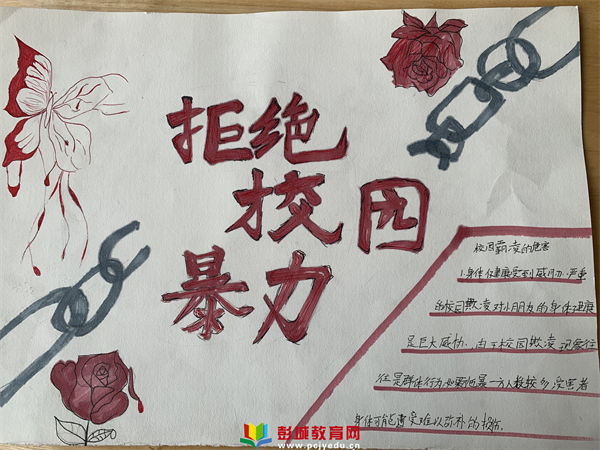 拒绝
校园
暴力
校园霸凌的危害
1.身体健康受到威胁力.严重
的校园欺凌对小朋友的身体健康
是巨大威协.由于校园欺凌现象往
往是群体行为,如果施暴一方人数较多,受害者
身体可能遭受难以弥补的损伤.
彭城教育网
www.pcjyedu.cn